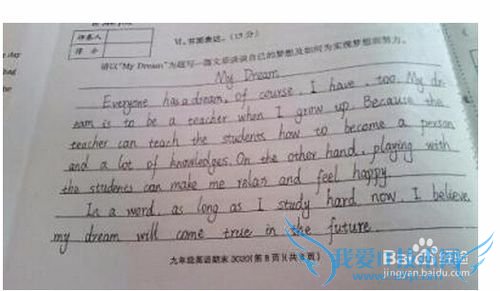 评卷人
得分
VI. 书面表达。(15分)
请以"My Dream"为题写一篇文章谈谈自己的梦想及如何为实现梦想而努力。
My Dream
Everyone has a dream, of course, I have, too. My dr-
eam is to be a teacher when I grow up. Because the
teacher can teach the students how to become a person
and a lot of knowledges. On the other hand, playing with
the students can make me relax and feel happy
In a word, as long as I study hard now, I believe
my dream will come true in the future.
九年级英语期末
Baidu经验
jingyan.baidu.com